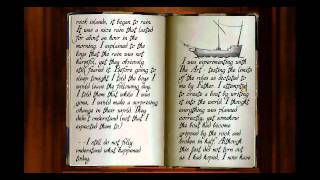 rock islands, it began to rain.
It was a nice rain that lasted
for about an hour in the
morning. I explained to the
boys that the rain was not
harmful, yet they obviously
still feared it. Before going to
sleep tonight I told the boys I
would leave the following day.
I told them that while I was
gone, I would make a surprising
change in their world. They
didn't understand (not that I
expected them to.)
I still do not fully
understand what happened
today.
I was experimenting with
The Art - testing the limits
of the rules as dictated to
me by Father. I attempted
to create a boat by writing
it into the world. I thought
everything was planned
correctly, yet somehow
the boat had become
gripped by the rock and
broken in half. Although
this feat did not turn out
as I had hoped, I now have